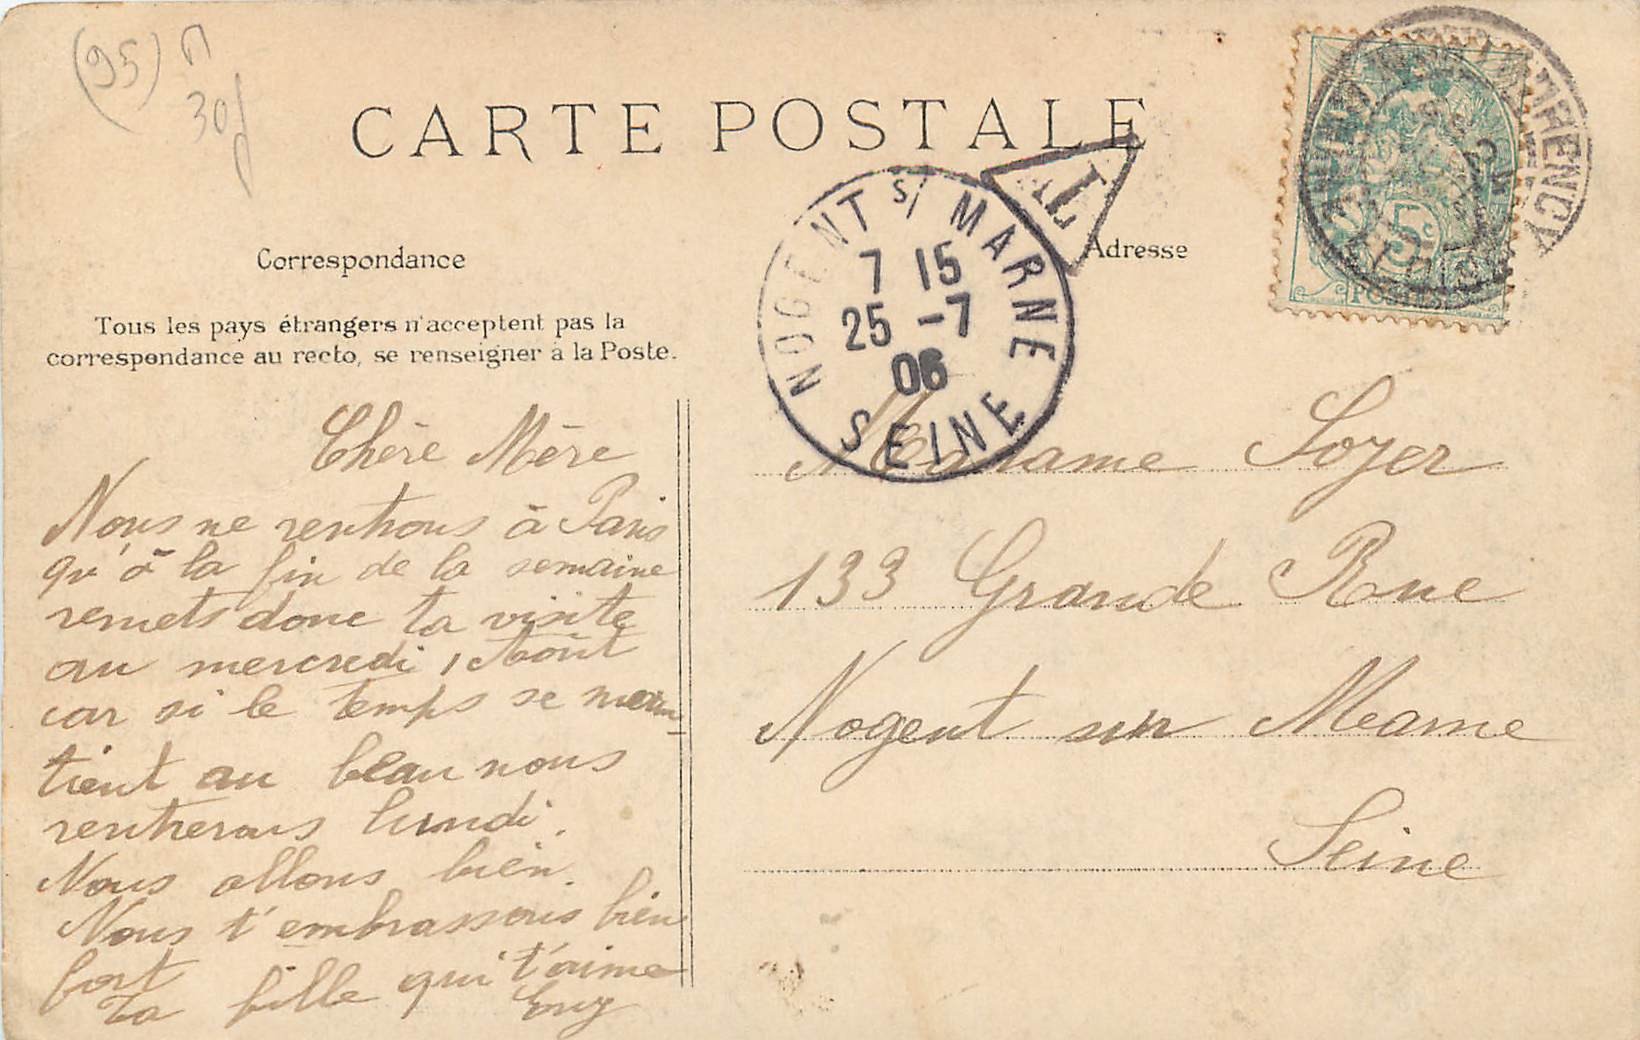 (95) 30f
CARTE POSTALE
Correspondance
Adresse
Tous les pays étrangers n'acceptent pas la
correspondance au recto, se renseigner à la Poste.
NOGENT S/ MARNE
7 15
25 -7
06
SEINE
T
5c
Chère Mère
Nous ne rentrons à Paris
qu'à la fin de la semaine
remets donc ta visite
au mercredi 1 Août
car si le temps se main-
tient au beau nous
rentrerons lundi.
Nous allons bien.
Nous t'embrassons bien
fort
Ta fille qui t'aime
Madame Soyer
133 Grande Rue
Nogent sur Marne
Seine